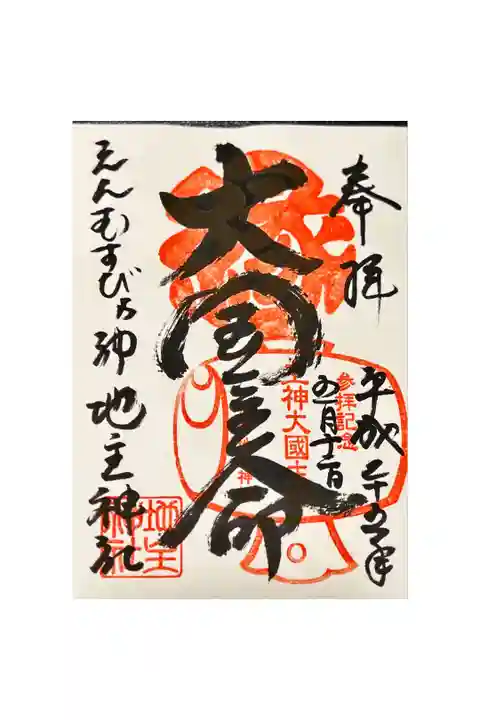 奉拝
平成二十五年
五月十二日
参拝記念
大国主命
神大國主
神
えんむすびの神 地主神社
地主神社